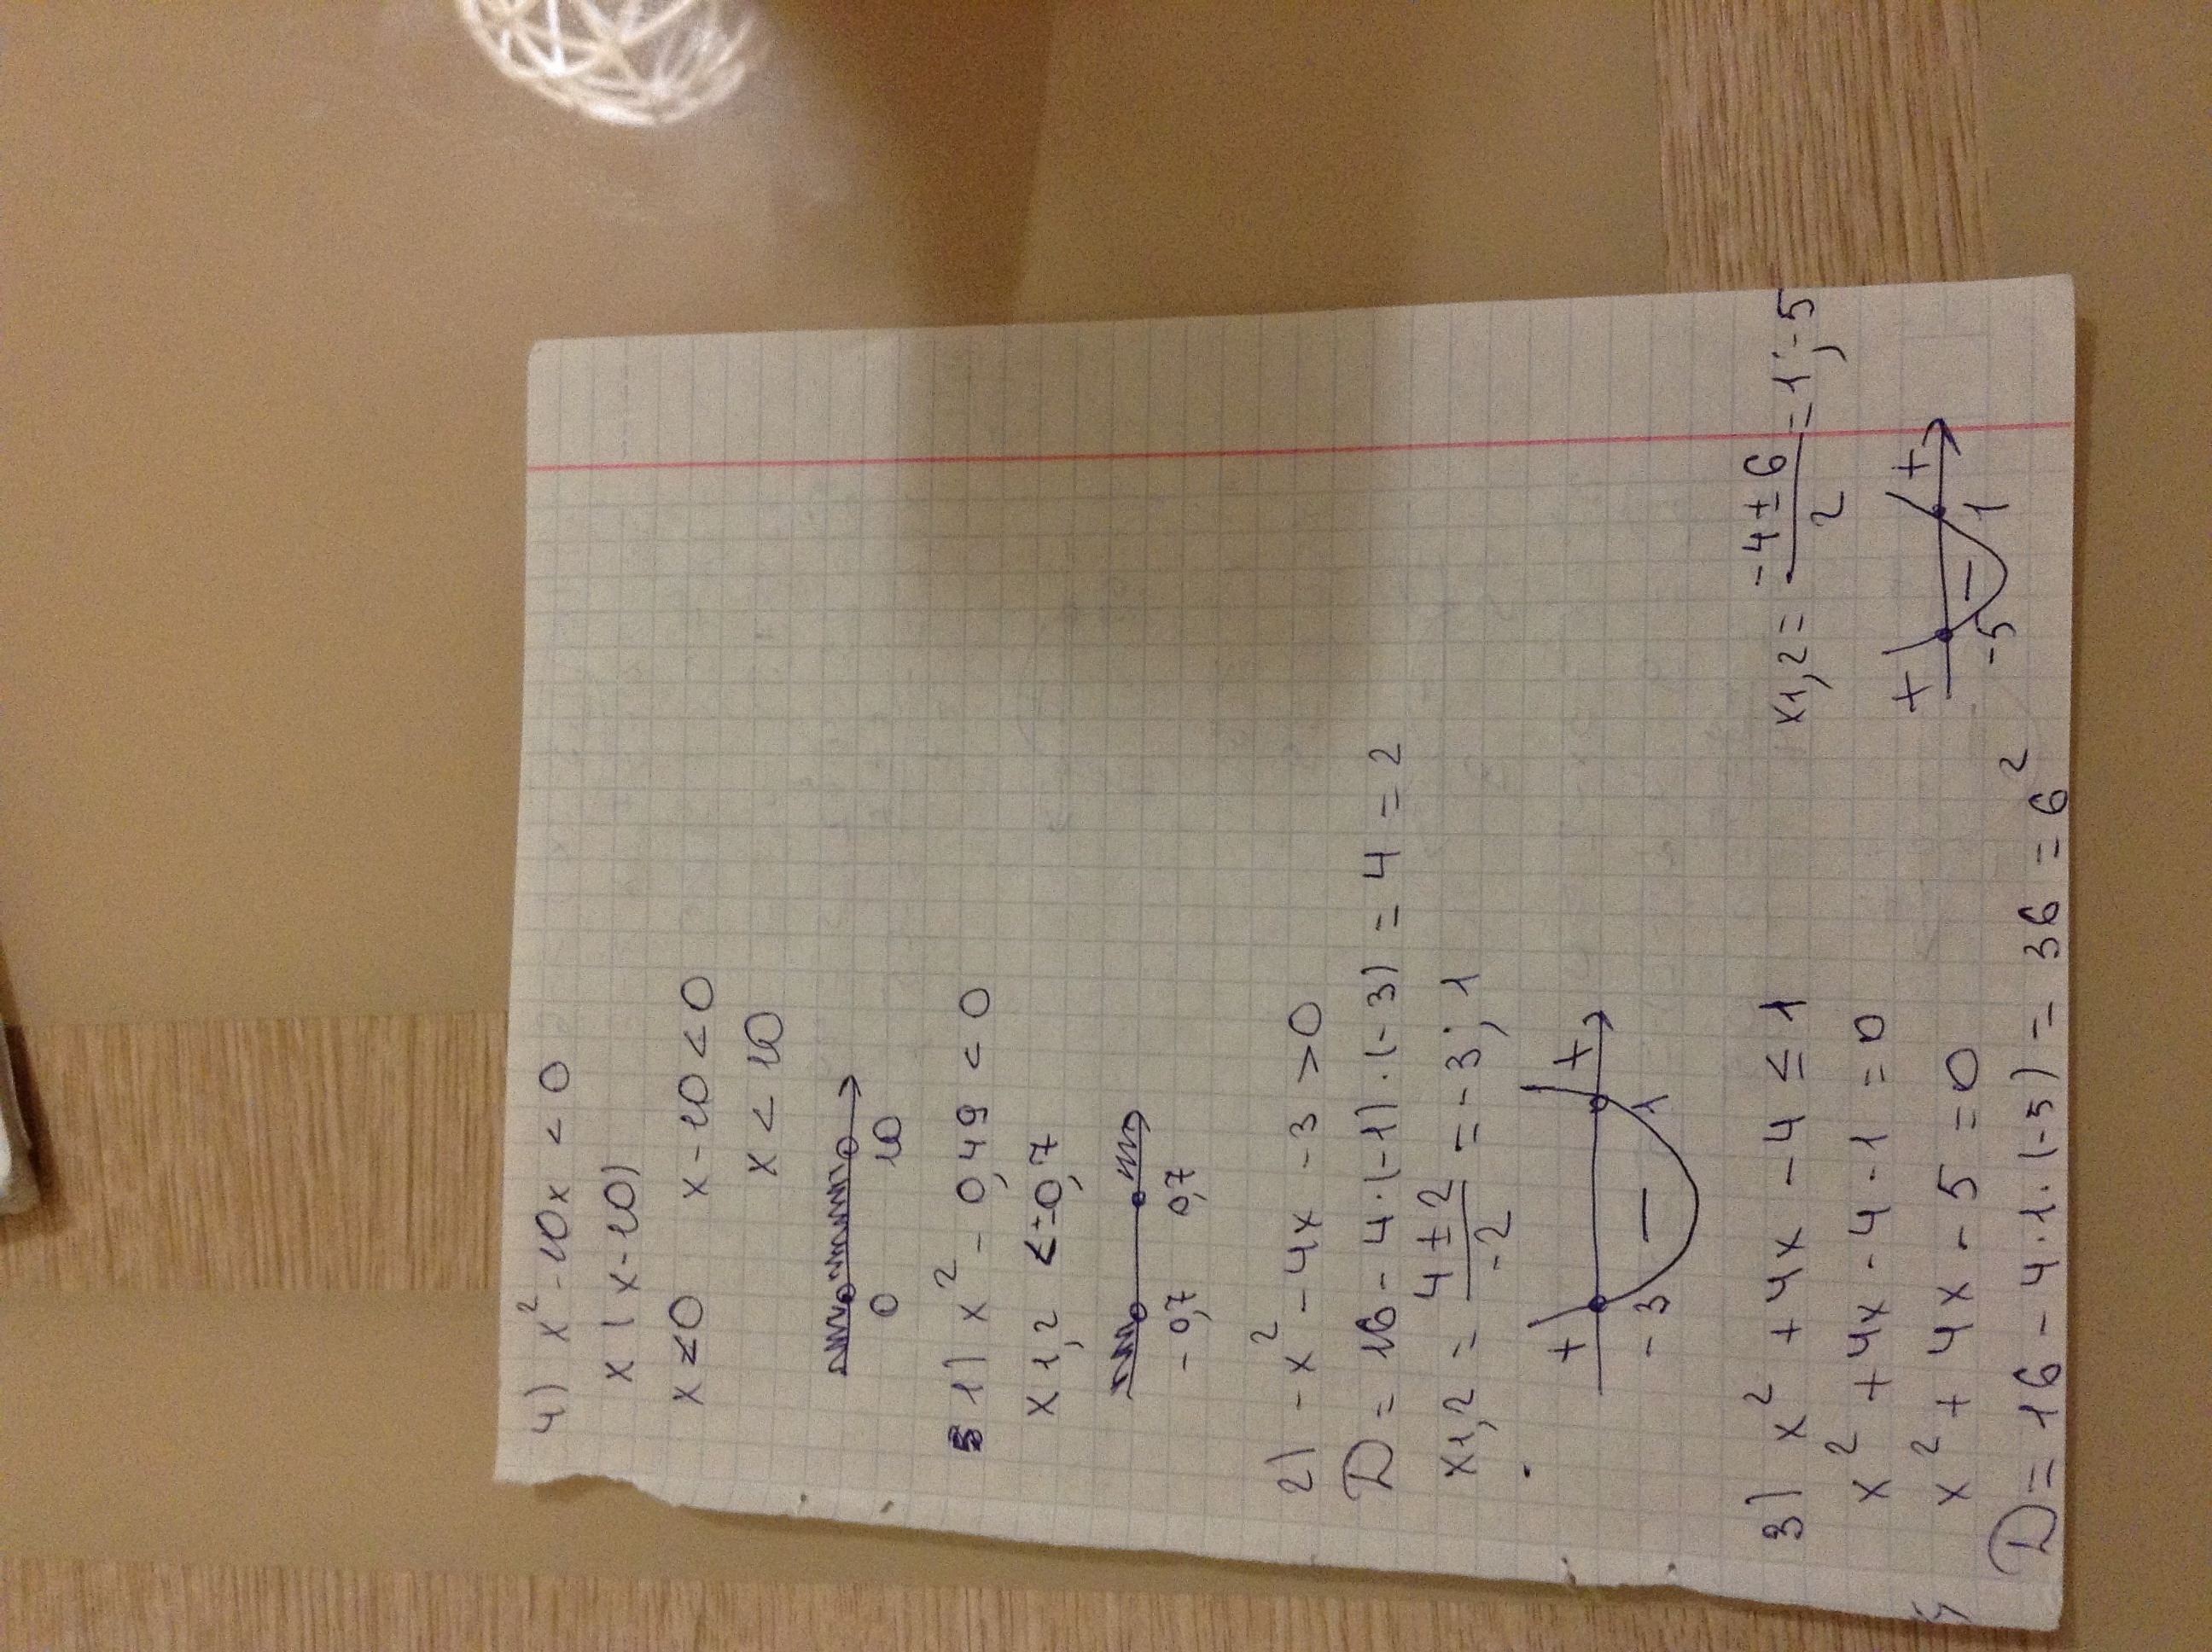 4) x² - 10x < 0
x(x-10)
x<0 x-10<0
x<10
0 10
1) x² - 0,49 < 0
x1,2 <±0,7
-0,7 0,7
2) -x² - 4x - 3 > 0
D = 16 - 4·(-1)·(-3) = 4 = 2
x1,2 = (4±2)/(-2) = -3; 1
+ - +
-3 1
3) x² + 4x - 4 ≤ 1
x² + 4x - 4 - 1 = 0
x² + 4x - 5 = 0
D = 16 - 4·1·(-5) = 36 = 6²
x1,2 = (-4±6)/2 = 1; -5
+ - +
-5 1